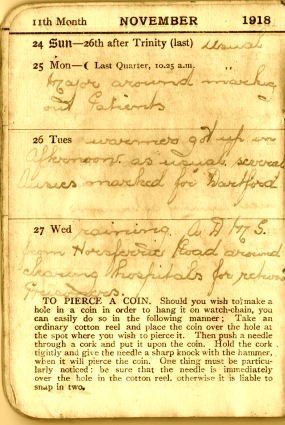 11th Month NOVEMBER 1918
24 Sun—26th after Trinity (last) Usual
25 Mon—☾ Last Quarter, 10.25 a.m.
Major around marking
out Patients
26 Tues warmer got up in
afternoon. as usual. several
marked for Dartford
27 Wed raining. A D M S.
from Horseferry Road around
clearing hospitals for
TO PIERCE A COIN. Should you wish to make a
hole in a coin in order to hang it on watch-chain, you
can easily do so in the following manner; Take an
ordinary cotton reel and place the coin over the hole at
the spot where you wish to pierce it. Then push a needle
through a cork and put it upon the coin. Hold the cork
tightly and give the needle a sharp knock with the hammer,
when it will pierce the coin. One thing must be particu-
larly noticed: be sure that the needle is immediately
over the hole in the cotton reel, otherwise it is liable to
snap in two.